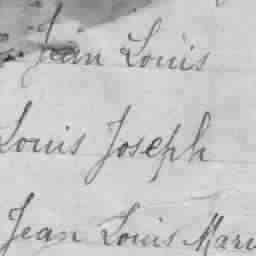 Jean Louis
Louis Joseph
Jean Louis Marie